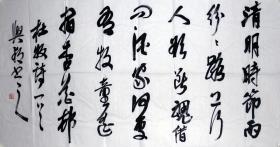 清明時節雨
紛々路上行
人欲斷魂借
問酒家何處
有牧童遙
指杏花村
杜牧詩一首